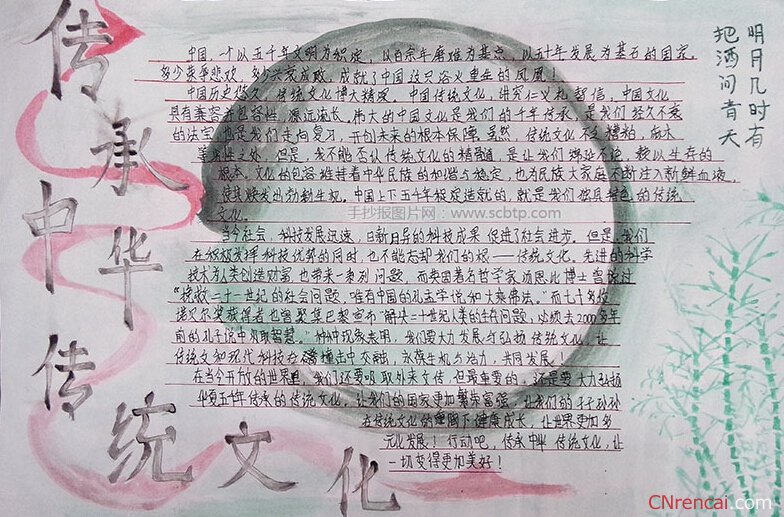 传承中华传统文化
明月几时有
把酒问青天
中国,一个以五千年文明为积淀,以百余年磨难为基点,以五十年发展为基石的国家。
多少来乎悲欢,多少兴衰成败,成就了中国这只浴火重生的凤凰!
中国历史悠久,传统文化博大精深。中国传统文化,讲究仁义礼智信,中国文化
具有兼容并包容性,源远流长。伟大的中国文化是我们的千年传承,是我们经久不衰
的法宝,也是我们走向复习,开创未来的根本保障。虽然,传统文化不乏糟粕,麻木
等劣性之处,但是,我不能否认传统文化的精髓,是让我们绵延不绝,赖以生存的
根本。文化的包容维持着中华民族的和谐与稳定,也为民族大家庭不断注入新鲜血液,
使其焕发出勃勃生机。中国上下五千年积淀造就的,就是我们独具特色的传统
文化。
手抄报图片网:www.scbtp.com
当今社会,科技发展迅速,日新月异的科技成果促进了社会进步。但是,我们
在积极发挥科技优势的同时,也不能忘却我们的根——传统文化。先进的科学
技术为人类创造财富,也带来一系列问题,而英国著名哲学家汤恩比博士曾说过
“挽救二十一世纪的社会问题,唯有中国的孔孟学说和大乘佛法。”而七十多位
诺贝尔奖获得者也曾聚集巴黎宣布“解决二十世纪人类的生存问题,必须去2000多年
前的孔子说中汲取智慧。”种种现象表明,我们要大力发展与弘扬传统文化,让
传统文和现代科技在撞击中交融,永葆生机与活力,共同发展!
在当今开放的世界里,我们还要吸取外来文传,但最重要的,还是要大力弘扬
华夏五千年传承的传统文化,让我们的国家更加繁荣富强,让我们的子子孙孙
在传统文化的下健康成长,让世界更加多
元化发展!行动吧,传承中华传统文化,让
一切变得更加美好!
CNrencai.com